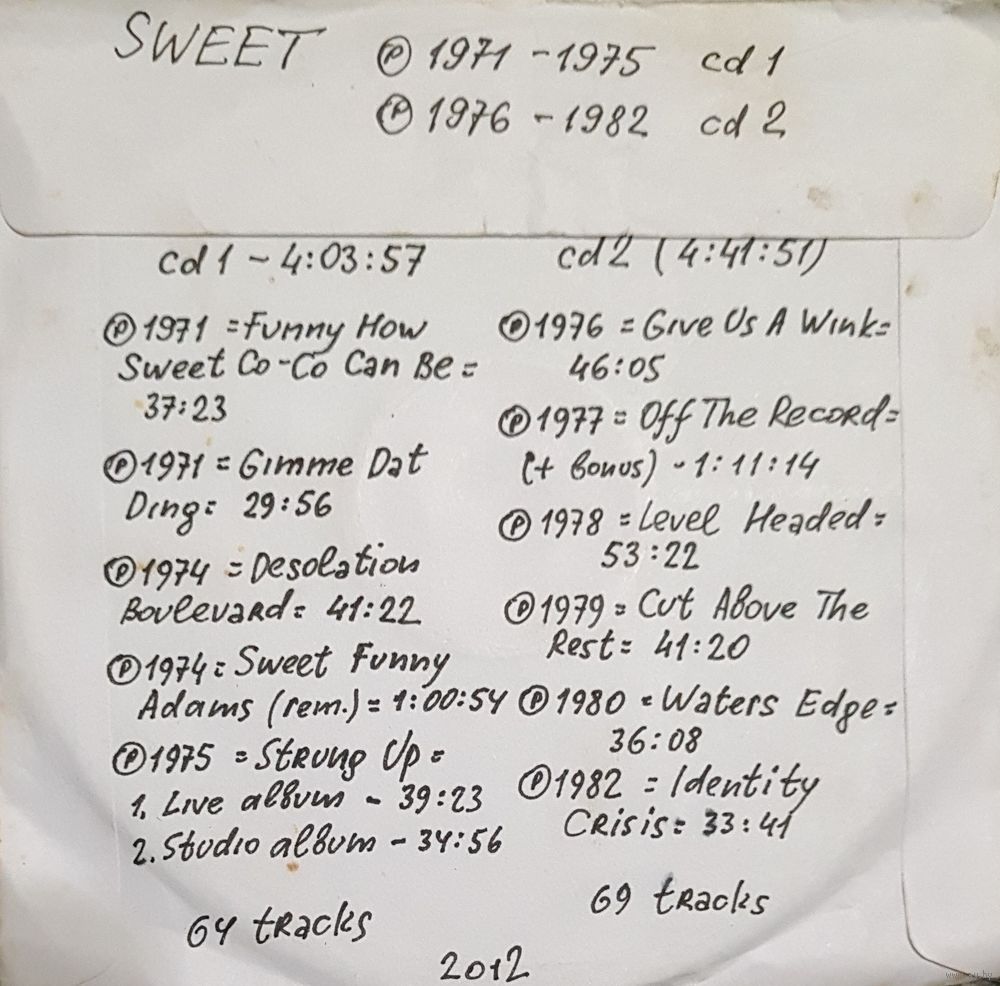 SWEET ℗ 1971 - 1975 cd 1
℗ 1976 - 1982 cd 2
cd 1 - 4:03:57
℗ 1971 = Funny How
Sweet Co-Co Can Be =
37:23
℗ 1971 = Gimme Dat
Ding = 29:56
℗ 1974 = Desolation
Boulevard = 41:22
℗ 1974 = Sweet Funny
Adams (rem.) = 1:00:54
℗ 1975 = Strung Up =
1. Live album - 39:23
2. Studio album - 34:56
64 tracks
cd 2 (4:41:51)
℗ 1976 = Give Us A Wink =
46:05
℗ 1977 = Off The Record =
(+ bonus) - 1:11:14
℗ 1978 = Level Headed =
53:22
℗ 1979 = Cut Above The
Rest = 41:20
℗ 1980 = Waters Edge =
36:08
℗ 1982 = Identity
Crisis = 33:41
69 tracks
2012